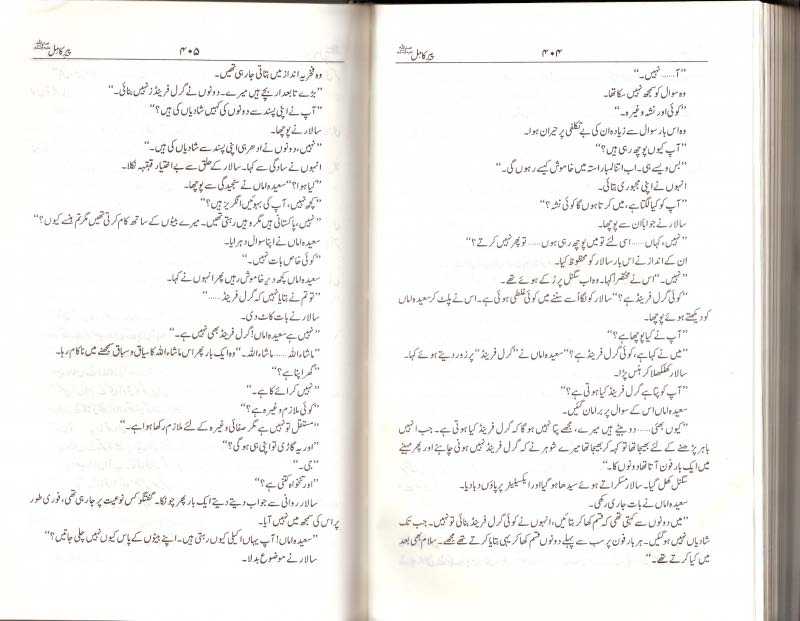 پیر کامل ﷺ
۴۰۴
”آ...... نہیں۔“
وہ سوال کو سمجھ نہیں سکا تھا۔
”کوئی اور نشہ وغیرہ۔“
وہ اس بار سوال سے زیادہ ان کی بے تکلفی پر حیران ہوا۔
”آپ کیوں پوچھ رہی ہیں؟“
”بس ویسے ہی۔ اب اتنا لمبا راستہ میں خاموش کیسے رہوں گی۔“
انہوں نے اپنی مجبوری بتائی۔
”آپ کو کیا لگتا ہے، میں کرتا ہوں گا کوئی نشہ؟“
سالار نے جواباً ان سے پوچھا۔
”نہیں، کہاں...... اسی لئے تو میں پوچھ رہی ہوں...... تو پھر نہیں کرتے؟“
ان کے انداز نے اس بار سالار کو محظوظ کیا۔
”نہیں۔“ اس نے مختصراً کہا۔ وہ اب سگنل پر رُکے ہوئے تھے۔
”کوئی گرل فرینڈ ہے؟“ سالار کو لگا اُسے سننے میں کوئی غلطی ہوئی ہے۔ اس نے پلٹ کر سعیدہ اماں
کو دیکھتے ہوئے پوچھا۔
”آپ نے کیا پوچھا ہے؟“
”میں نے کہا ہے، کوئی گرل فرینڈ ہے؟“ سعیدہ اماں نے ”گرل فرینڈ“ پر زور دیتے ہوئے کہا۔
سالار کھلکھلا کر ہنس پڑا۔
”آپ کو پتا ہے گرل فرینڈ کیا ہوتی ہے؟“
سعیدہ اماں اس کے سوال پر برا مان گئیں۔
”کیوں بھئی...... دو بیٹے ہیں میرے، مجھے پتا نہیں ہو گا کہ گرل فرینڈ کیا ہوتی ہے۔ جب انہیں
باہر پڑھنے کے لئے بھیجا تھا تو کہہ کر بھیجا تھا میرے شوہر نے کہ گرل فرینڈ نہیں ہونی چاہئے اور پھر مہینے
میں ایک بار فون آتا تھا دونوں کا۔“
سگنل کھل گیا۔ سالار مسکراتے ہوئے سیدھا ہو گیا اور ایکسیلیٹر پر پاؤں دبا دیا۔
سعیدہ اماں نے بات جاری رکھی۔
”میں دونوں سے کہتی تھی کہ قسم کھا کر بتائیں، انہوں نے کوئی گرل فرینڈ بنائی تو نہیں۔ جب تک
شادیاں نہیں ہو گئیں۔ ہر بار فون پر سب سے پہلے دونوں قسم کھا کر یہی بتایا کرتے تھے مجھے۔ سلام بھی بعد
میں کیا کرتے تھے۔“
پیر کامل ﷺ
۴۰۵
وہ فخریہ انداز میں بتاتی جا رہی تھیں۔
”بڑے تابعدار بچے ہیں میرے۔ دونوں نے گرل فرینڈز نہیں بنائی۔“
”آپ نے اپنی پسند سے دونوں کی کہیں شادیاں کی ہیں؟“
سالار نے پوچھا۔
”نہیں، دونوں نے ادھر ہی اپنی پسند سے شادیاں کی ہیں۔“
انہوں نے سادگی سے کہا۔ سالار کے حلق سے بے اختیار قہقہہ نکلا۔
”کیا ہوا؟“ سعیدہ اماں نے سنجیدگی سے پوچھا۔
”کچھ نہیں، آپ کی بہوئیں انگریز ہیں؟“
”نہیں، پاکستانی ہیں مگر وہیں رہتی تھیں۔ میرے بیٹوں کے ساتھ کام کرتی تھیں مگر تم ہنسے کیوں؟“
سعیدہ اماں نے اپنا سوال دہرایا۔
”کوئی خاص بات نہیں۔“
سعیدہ اماں کچھ دیر خاموش رہیں پھر انہوں نے کہا۔
”تو تم نے بتایا نہیں کہ گرل فرینڈ......“
سالار نے بات کاٹ دی۔
”نہیں ہے سعیدہ اماں! گرل فرینڈ بھی نہیں ہے۔“
”ماشاء اللہ...... ماشاء اللہ۔“ وہ ایک بار پھر اس ماشاء اللہ کا سیاق و سباق سمجھنے میں ناکام رہا۔
”گھر اپنا ہے؟“
”نہیں کرائے کا ہے۔“
”کوئی ملازم وغیرہ ہے؟“
”مستقل تو نہیں ہے مگر صفائی وغیرہ کے لئے ملازم رکھا ہوا ہے۔“
”اور یہ گاڑی تو اپنی ہی ہو گی؟“
”جی۔“
”اور تنخواہ کتنی ہے؟“
سالار روانی سے جواب دیتے دیتے ایک بار پھر چونکا۔ گفتگو کس نوعیت پر جا رہی تھی، فوری طور
پر اس کی سمجھ میں نہیں آیا۔
”سعیدہ اماں! آپ یہاں اکیلی کیوں رہتی ہیں۔ اپنے بیٹوں کے پاس کیوں نہیں چلی جاتیں؟“
سالار نے موضوع بدلا۔